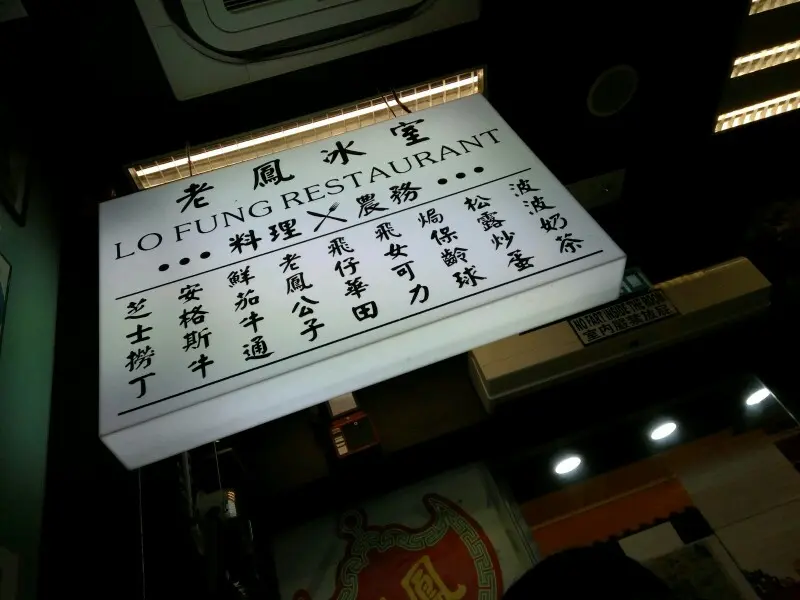 老鳳冰室
LO FUNG RESTAURANT
料理 農務
芝士撈丁
安格斯牛
鮮茄牛通
老鳳公子
飛仔華田
飛女可力
焗保齡球
松露炒蛋
波波奶茶
NO FART INSIDE THE ROOM
室內嚴禁放屁
鳳